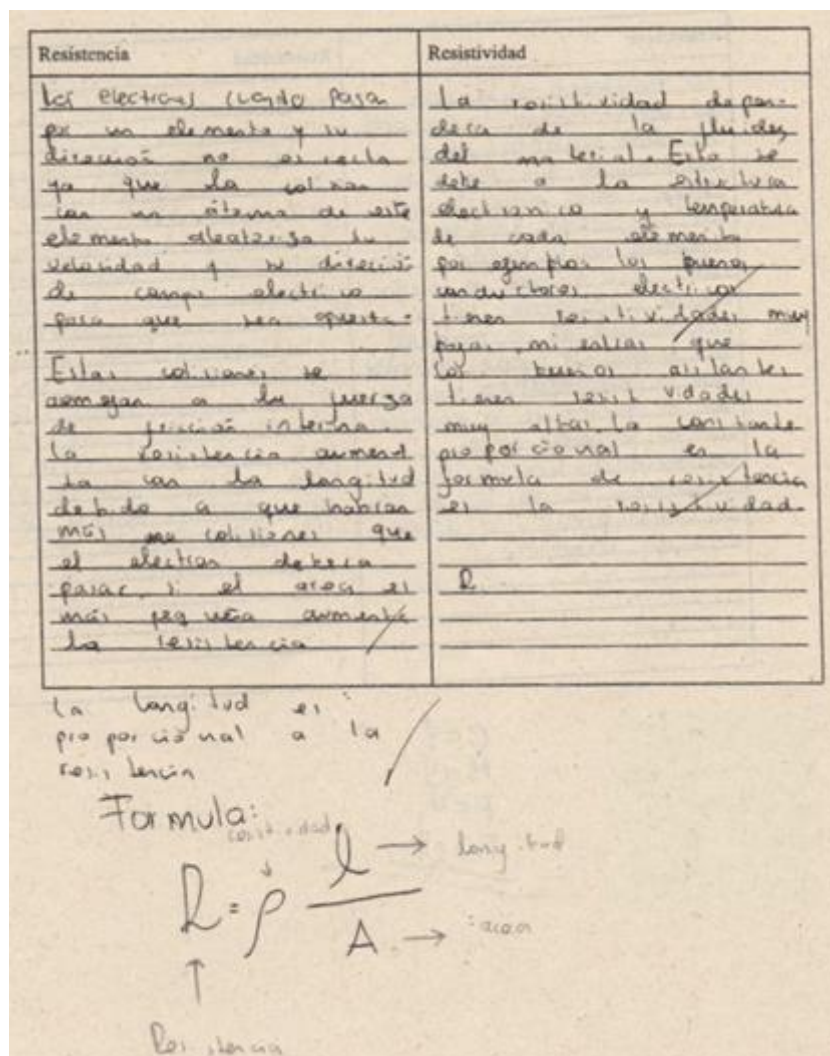 Resistencia
Los electrones cuando pasan
por un elemento y su
dirección no es recta
ya que la colisión
con un átomo de este
elemento aleatoriza su
velocidad y su dirección
de campo eléctrico
para que sea opuesta.
Estas colisiones se
asemejan a la fuerza
de fricción interna.
La resistencia aumen
ta con la longitud
debido a que habrían
más colisiones que
el electron debera
pasar, si el area es
más pequeña aumenta
la resistencia
Resistividad
La resistividad depen-
dera de la fluidez
del material. Esto se
debe a la estructura
electronica y temperatura
de cada elemento
por ejemplos los buenos
conductores electricos
tienen resistividades muy
bajas, mientras que
los buenos aislantes
tienen resistividades
muy altas. La constante
proporcional en la
formula de resistencia
es la resistividad.
R
La longitud es
proporcional a la
resistencia
Formula:
resistividad
R = ρ l / A
longitud
area
Resistencia